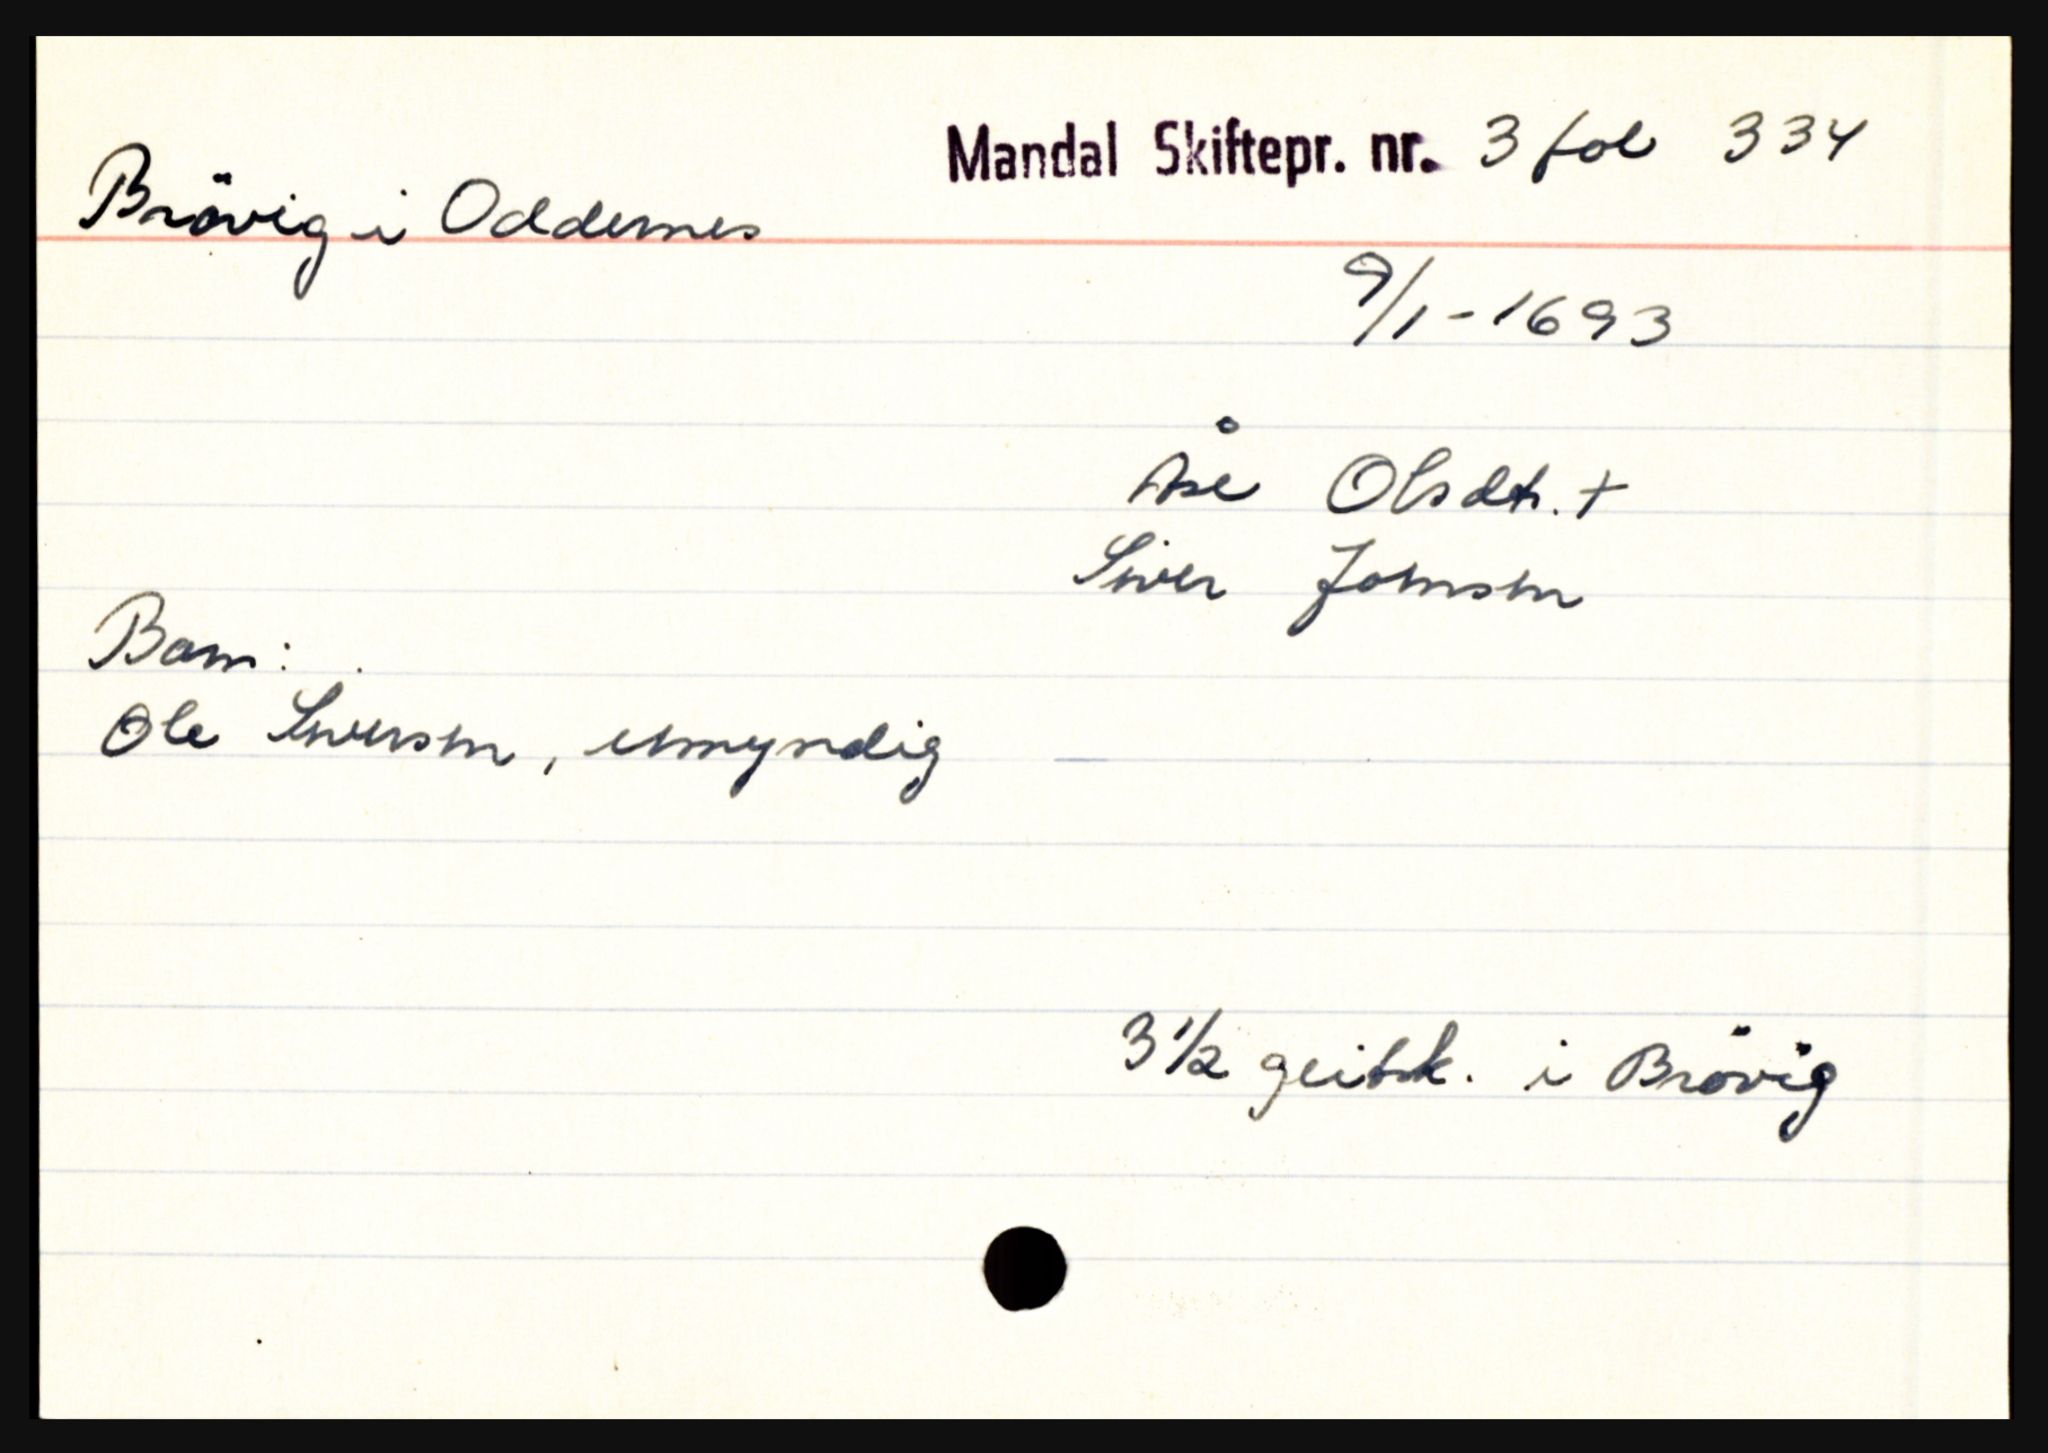 Mandal Skiftepr. nr. 3 fol 334
Brövig i Oddernes
9/1-1693
Åse Olsdtr. +
Siver Johnsen
Barn:
Ole Siversen, umyndig
3 1/2 geitsk. i Brövig